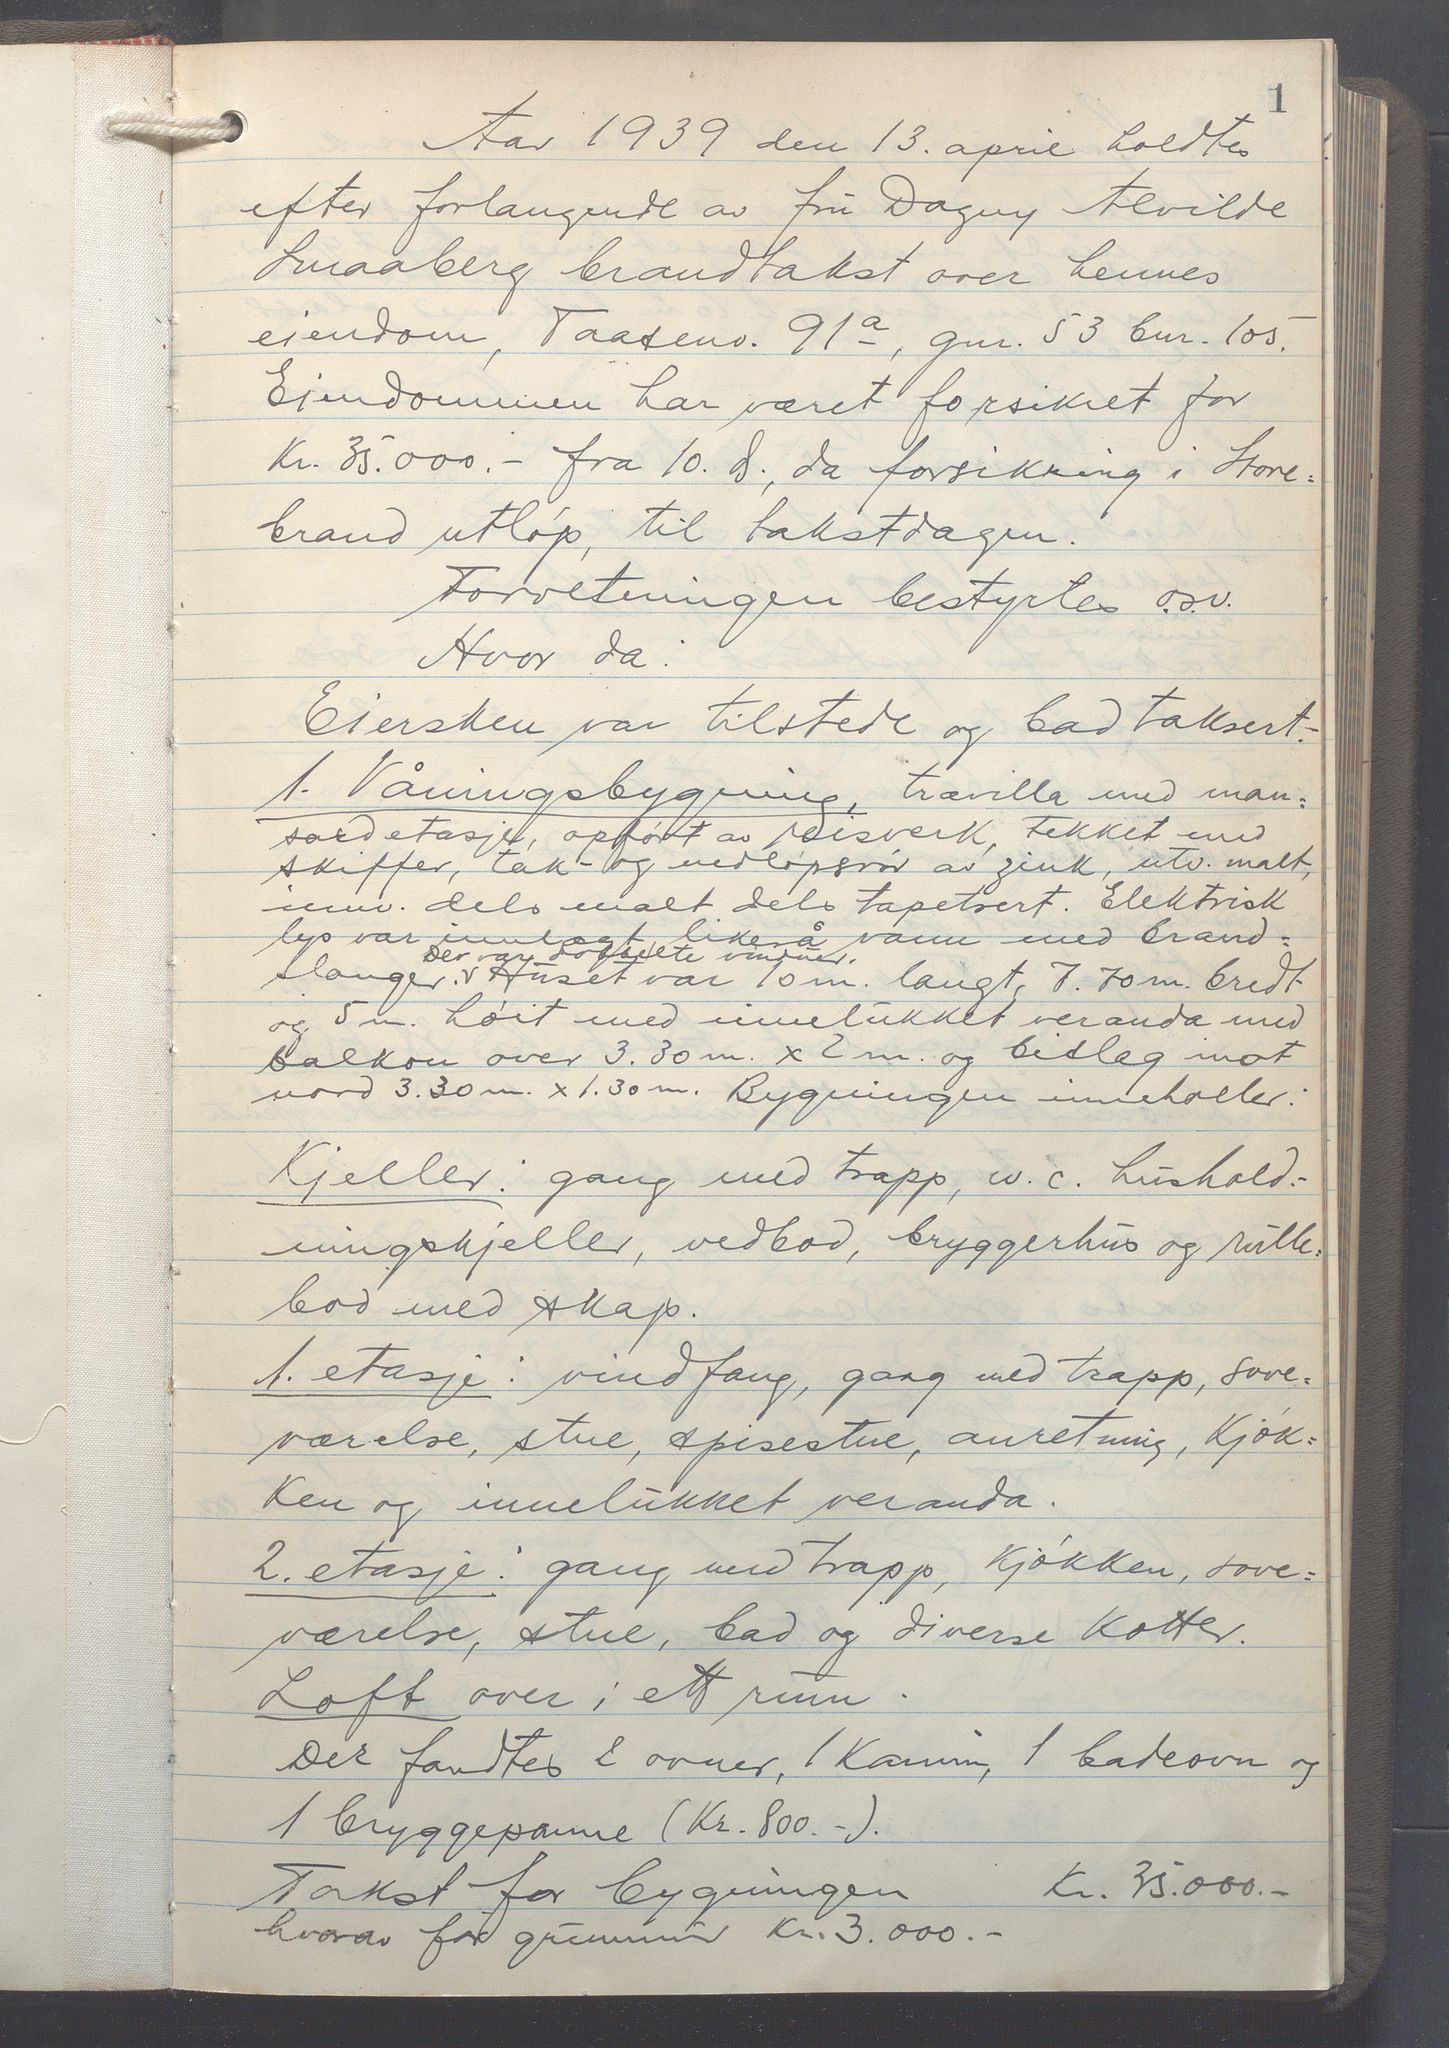 1
Aar 1939 den 13. april holdtes
efter forlangende av fru Dagny Alvilde
Smaaberg brandtakst over hennes
eiendom, Taasenv. 91a, gnr. 53 bnr. 105.
Eiendommen har været forsikret for
Kr. 35.000.- fra 10. ds., da forsikring i Store=
brand utløp, til takstdagen.
Forretningen bestyrtes o.s.v.
Hvor da:
Eiersken var tilstede og bad taksert:
1. Våningsbygning, trævilla med man=
sardetasje, opført av reisverk, tekket med
skiffer, tak- og nedløpsrør av zink, utv. malt,
innv. dels malt dels tapetsert. Elektrisk
lys var innlagt likeså vann med brand=
Der var dobbelte vinduer.
slanger. v Huset var 10 m. langt, 7.70 m. bredt
og 5 m. høit med innelukket veranda med
balkon over 3.30 m. x 2 m. og bislag mot
nord 3.30 m. x 1.30 m. Bygningen inneholder:
Kjeller: gang med trapp, w.c. hushold=
ningskjeller, vedbod, bryggerhus og rulle=
bod med skap.
1. etasje: vindfang, gang med trapp, sove=
værelse, stue, spisestue, anretning, kjøk=
ken og innelukket veranda.
2. etasje: gang med trapp, kjøkken, sove=
værelse, stue, bad og diverse kotter.
Loft over i ett rum.
Der fandtes 2 ovner, 1 kamin, 1 badeovn og
1 bryggepanne (Kr. 800.-).
Takst for bygningen Kr. 35.000.-
hvorav for grunnmur Kr. 3.000.-